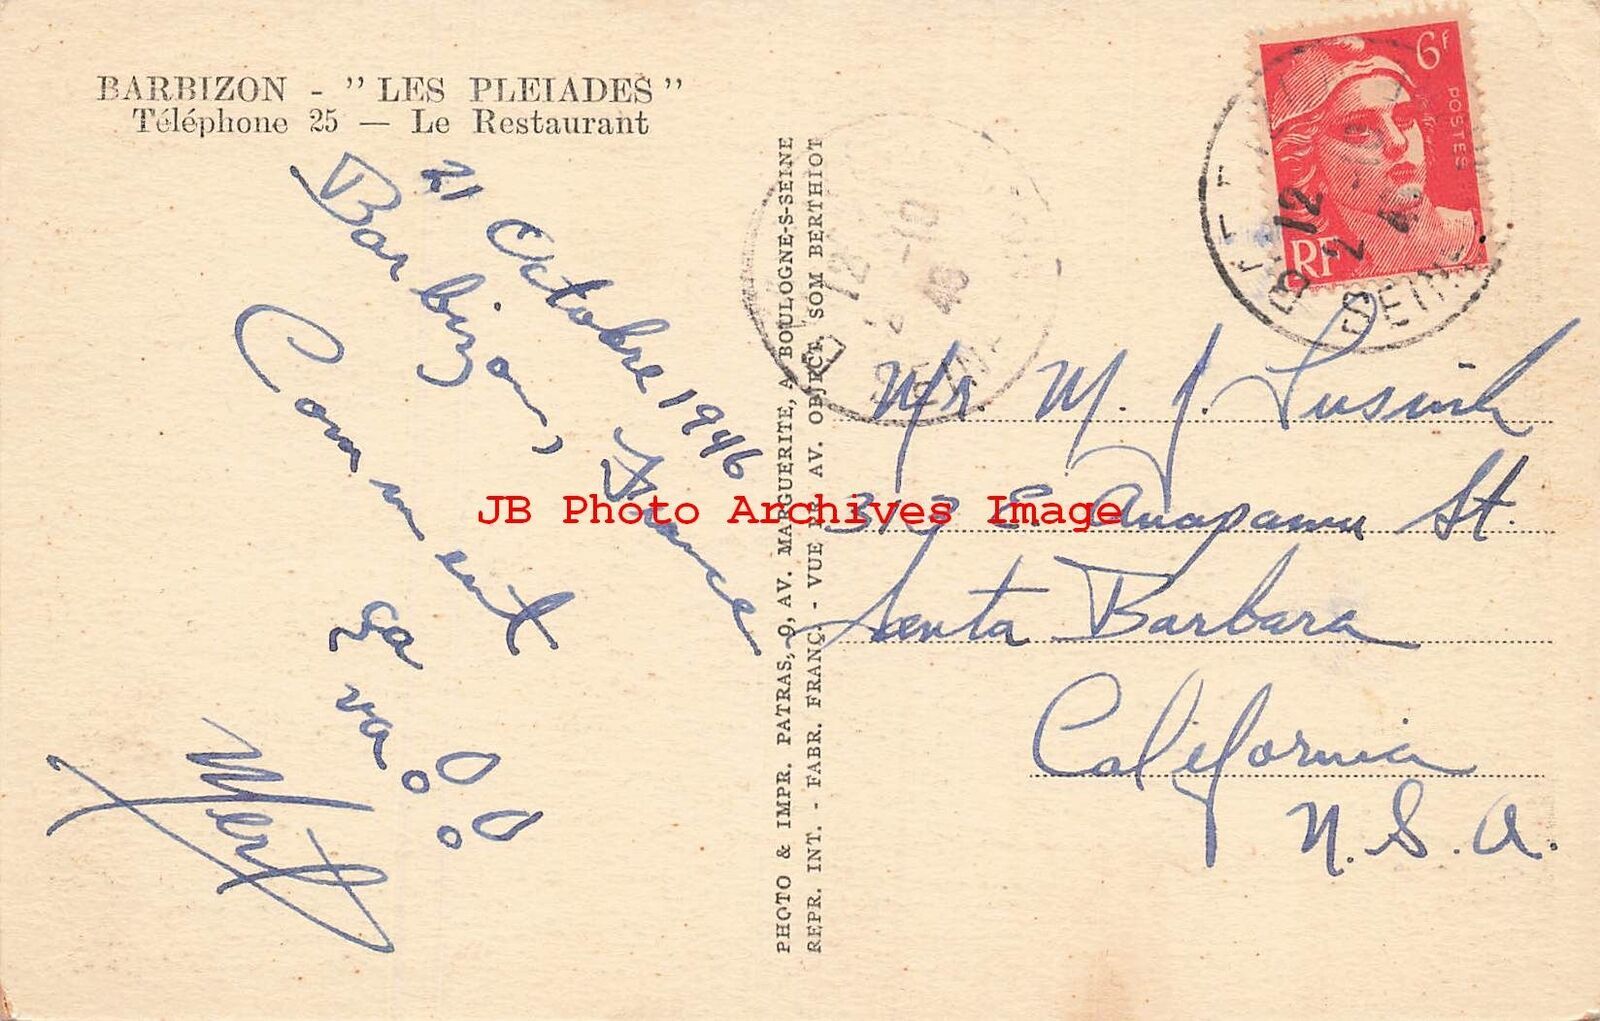 BARBIZON - "LES PLEIADES"
Téléphone 25 — Le Restaurant
21 Octobre 1946
Barbizon, France
Comment
ça
va??
PHOTO & IMPR. PATRAS, 9, AV. MARGUERITE, A BOULOGNE-S-SEINE
REPR. INT. - FABR. FRANÇ. - VUE PR AV. OBJECT. SOM BERTHIOT
6f
POSTES
RF
12
2 -10
46
SEINE
12
2 -10
46
SEINE
Mr. M. J.
313 E. Anapamu St.
Santa Barbara
California
U.S.A.
JB Photo Archives Image